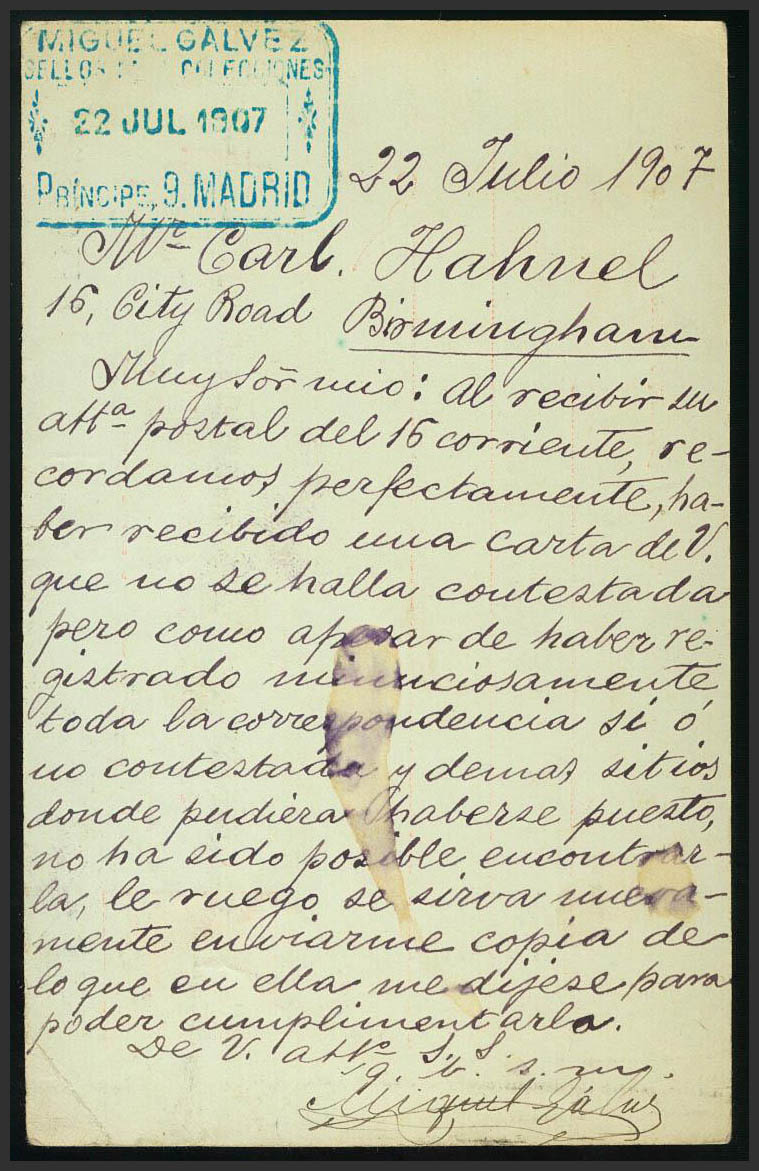 MIGUEL GALVEZ
SELLOS COLECCIONES
22 JUL 1907
PRÍNCIPE, 9. MADRID
22 Julio 1907
Mr Carl. Hahnel
16, City Road Birmingham
Muy Sor mio: Al recibir su
atta postal del 16 corriente, re-
cordamos perfectamente, ha-
ber recibido una carta de V.
que no se halla contestada
pero como apesar de haber re-
gistrado minuciosamente
toda la correspondencia si ó
no contestada y demas sitios
donde pudiera haberse puesto,
no ha sido posible encontrar-
la, le ruego se sirva nueva-
mente enviarme copia de
lo que en ella me dijese para
poder cumplimentarla.
De V. atto S. S.
q. b. s. m.
Miguel Gálvez